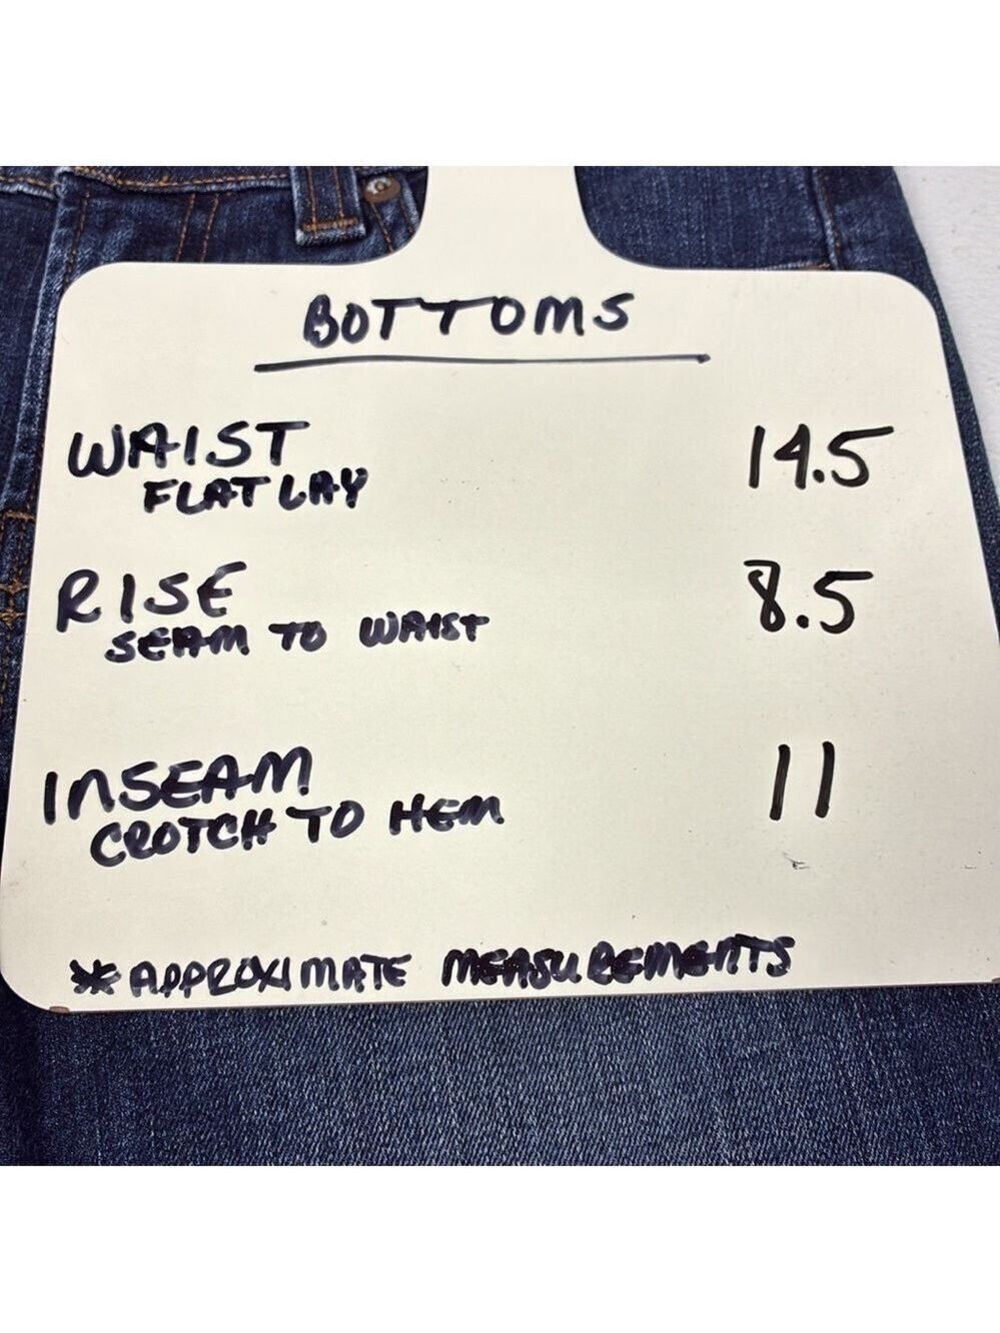 BOTTOMS
WAIST 14.5
FLAT LAY
RISE 8.5
SEAM TO WAIST
INSEAM 11
CROTCH TO HEM
*APPROXIMATE MEASUREMENTS